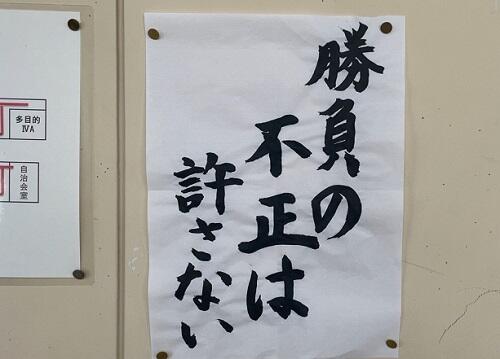 勝負の
不正は
許さない
多目的
ⅣA
自治会室